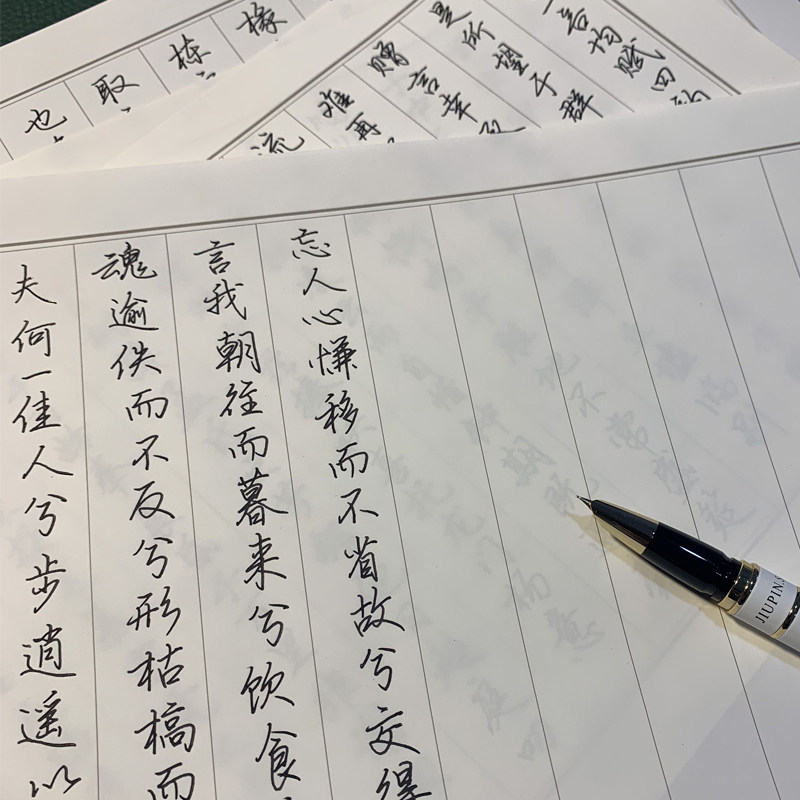 也
取
栋
椽
流
难再
赠言幸
是所望于群
言均赋四
夫何一佳人兮步逍遥以
魂逾佚而不反兮形枯槁而
言我朝往而暮来兮饮食
忘人心慊移而不省故兮交得
JIUPIN